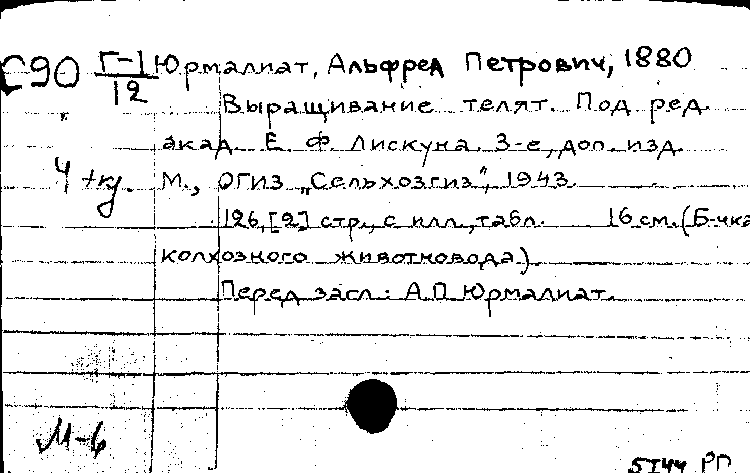 С90 Г-1/12 Юрмалиат, Альфред Петрович, 1880
Выращивание телят. Под ред.
акад. Е. Ф. Лискуна. 3-е, доп. изд.
Ч +ку. М., ОГИЗ „Сельхозгиз“, 1943.
126,[2] стр., с илл., табл. 16 см. (Б-чка
колхозного животновода).
Перед загл.: А.П.Юрмалиат.
М-6
РП